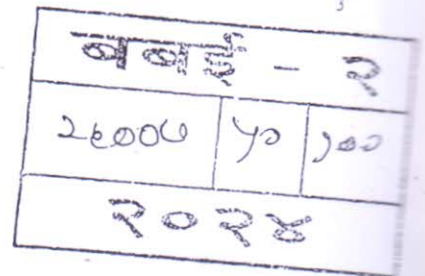 बबई - २
२६००७ ५० १००
२०२४